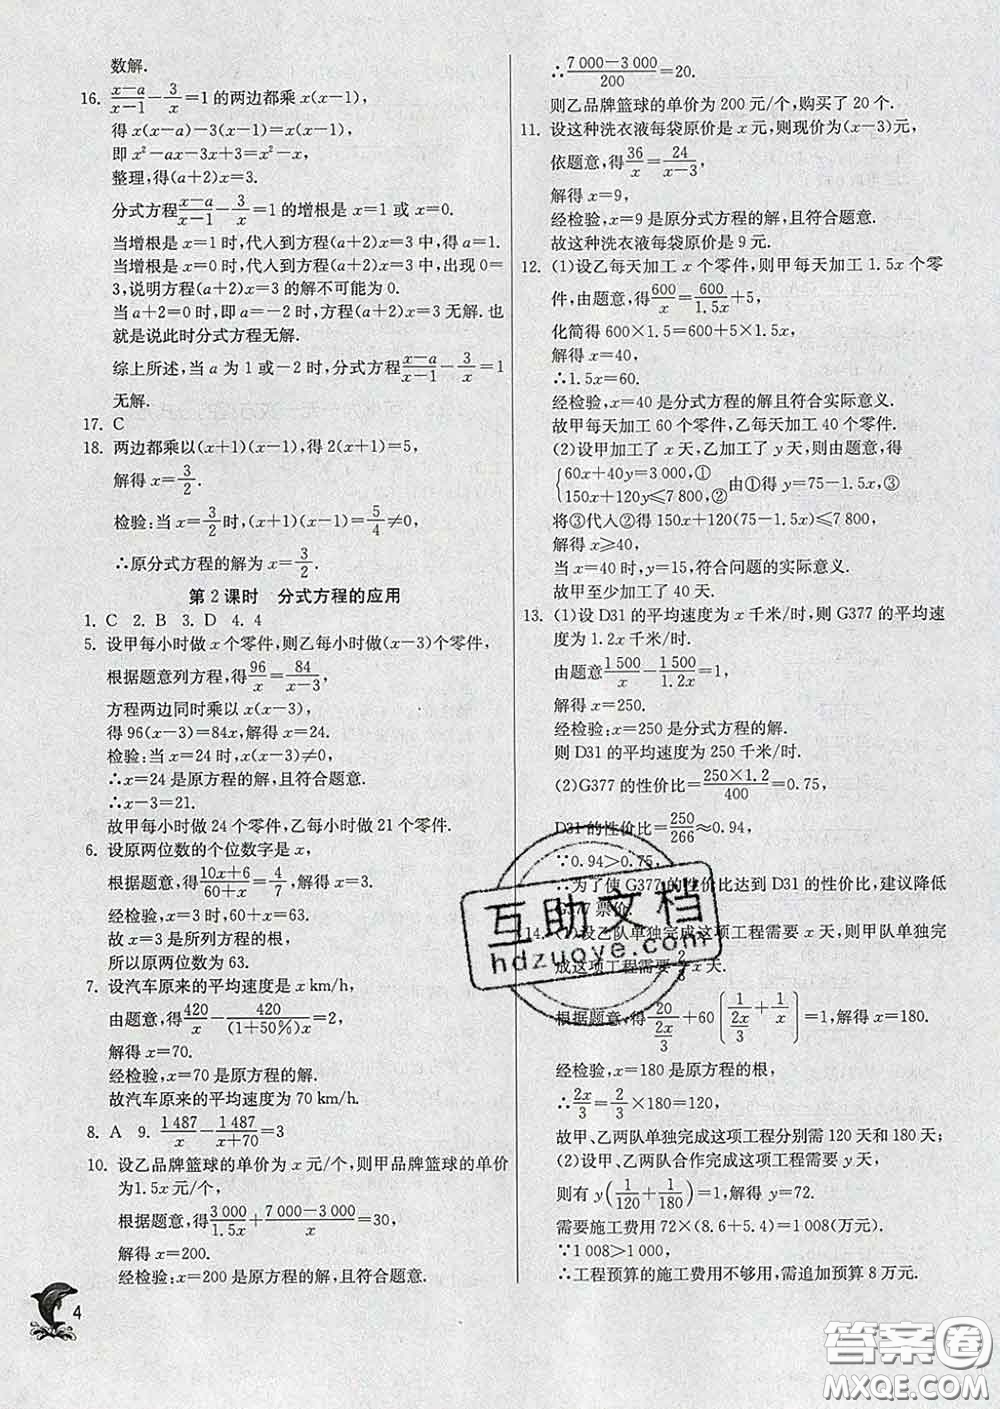 数解.
16. (x-a)/(x-1)-3/x=1的两边都乘x(x-1),
得x(x-a)-3(x-1)=x(x-1),
即x²-ax-3x+3=x²-x,
整理,得(a+2)x=3.
分式方程(x-a)/(x-1)-3/x=1的增根是x=1或x=0.
当增根是x=1时,代人到方程(a+2)x=3中,得a=1.
当增根是x=0时,代人到方程(a+2)x=3中,出现0=
3,说明方程(a+2)x=3的解不可能为0.
当a+2=0时,即a=-2时,方程(a+2)x=3无解.也
就是说此时分式方程无解.
综上所述,当a为1或-2时,分式方程(x-a)/(x-1)-3/x=1
无解.
17. C
18. 两边都乘以(x+1)(x-1),得2(x+1)=5,
解得x=3/2.
检验:当x=3/2时,(x+1)(x-1)=5/4≠0,
∴原分式方程的解为x=3/2.
第2课时 分式方程的应用
1. C 2. B 3. D 4. 4
5. 设甲每小时做x个零件,则乙每小时做(x-3)个零件,
根据题意列方程,得96/x=84/(x-3),
方程两边同时乘以x(x-3),
得96(x-3)=84x,解得x=24.
检验:当x=24时,x(x-3)≠0,
∴x=24是原方程的解,且符合题意.
∴x-3=21.
故甲每小时做24个零件,乙每小时做21个零件.
6. 设原两位数的个位数字是x,
根据题意,得(10x+6)/(60+x)=4/7,解得x=3.
经检验,当x=3时,60+x=63.
故x=3是所列方程的根,
所以原两位数为63.
7. 设汽车原来的平均速度是x km/h,
由题意,得420/x-420/((1+50%)x)=2,
解得x=70.
经检验,x=70是原方程的解.
故汽车原来的平均速度为70 km/h.
8. A 9. 1 487/x-1 487/(x+70)=3
10. 设乙品牌篮球的单价为x元/个,则甲品牌篮球的单价
为1.5x元/个,
根据题意,得3 000/1.5x+(7 000-3 000)/x=30,
解得x=200.
经检验:x=200是原方程的解,且符合题意.
∴(7 000-3 000)/200=20.
则乙品牌篮球的单价为200元/个,购买了20个.
11. 设这种洗衣液每袋原价是x元,则现价为(x-3)元,
依题意,得36/x=24/(x-3),
解得x=9,
经检验,x=9是原分式方程的解,且符合题意.
故这种洗衣液每袋原价是9元.
12. (1)设乙每天加工x个零件,则甲每天加工1.5x个零
件,由题意,得600/x=600/1.5x+5,
化简得600×1.5=600+5×1.5x,
解得x=40,
∴1.5x=60.
经检验,x=40是分式方程的解且符合实际意义.
故甲每天加工60个零件,乙每天加工40个零件.
(2)设甲加工了x天,乙加工了y天,则由题意,得
{60x+40y=3 000,①
150x+120y≤7 800,② 由①得y=75-1.5x,③
将③代人②得150x+120(75-1.5x)≤7 800,
解得x≥40,
当x=40时,y=15,符合问题的实际意义.
故甲至少加工了40天.
13. (1)设D31的平均速度为x千米/时,则G377的平均速
度为1.2x千米/时.
由题意1 500/x-1 500/1.2x=1,
解得x=250.
经检验:x=250是分式方程的解.
则D31的平均速度为250千米/时.
(2)G377的性价比=250×1.2/400=0.75,
D31的性价比=250/266≈0.94,
∵0.94>0.75,
∴为了使G377的性价比达到D31的性价比,建议降低
G377票价.
14. (1)设乙队单独完成这项工程需要x天,则甲队单独完
成这项工程需要2/3x天.
根据题意,得20/(2x/3)+60(1/(2x/3)+1/x)=1,解得x=180.
经检验,x=180是原方程的根,
∴2x/3=2/3×180=120,
故甲、乙两队单独完成这项工程分别需120天和180天;
(2)设甲、乙两队合作完成这项工程需要y天,
则有y(1/120+1/180)=1,解得y=72.
需要施工费用72×(8.6+5.4)=1 008(万元).
∵1 008>1 000,
∴工程预算的施工费用不够用,需追加预算8万元.
互助文档
hdzuoye.com
4
答案卷
MXQE.COM